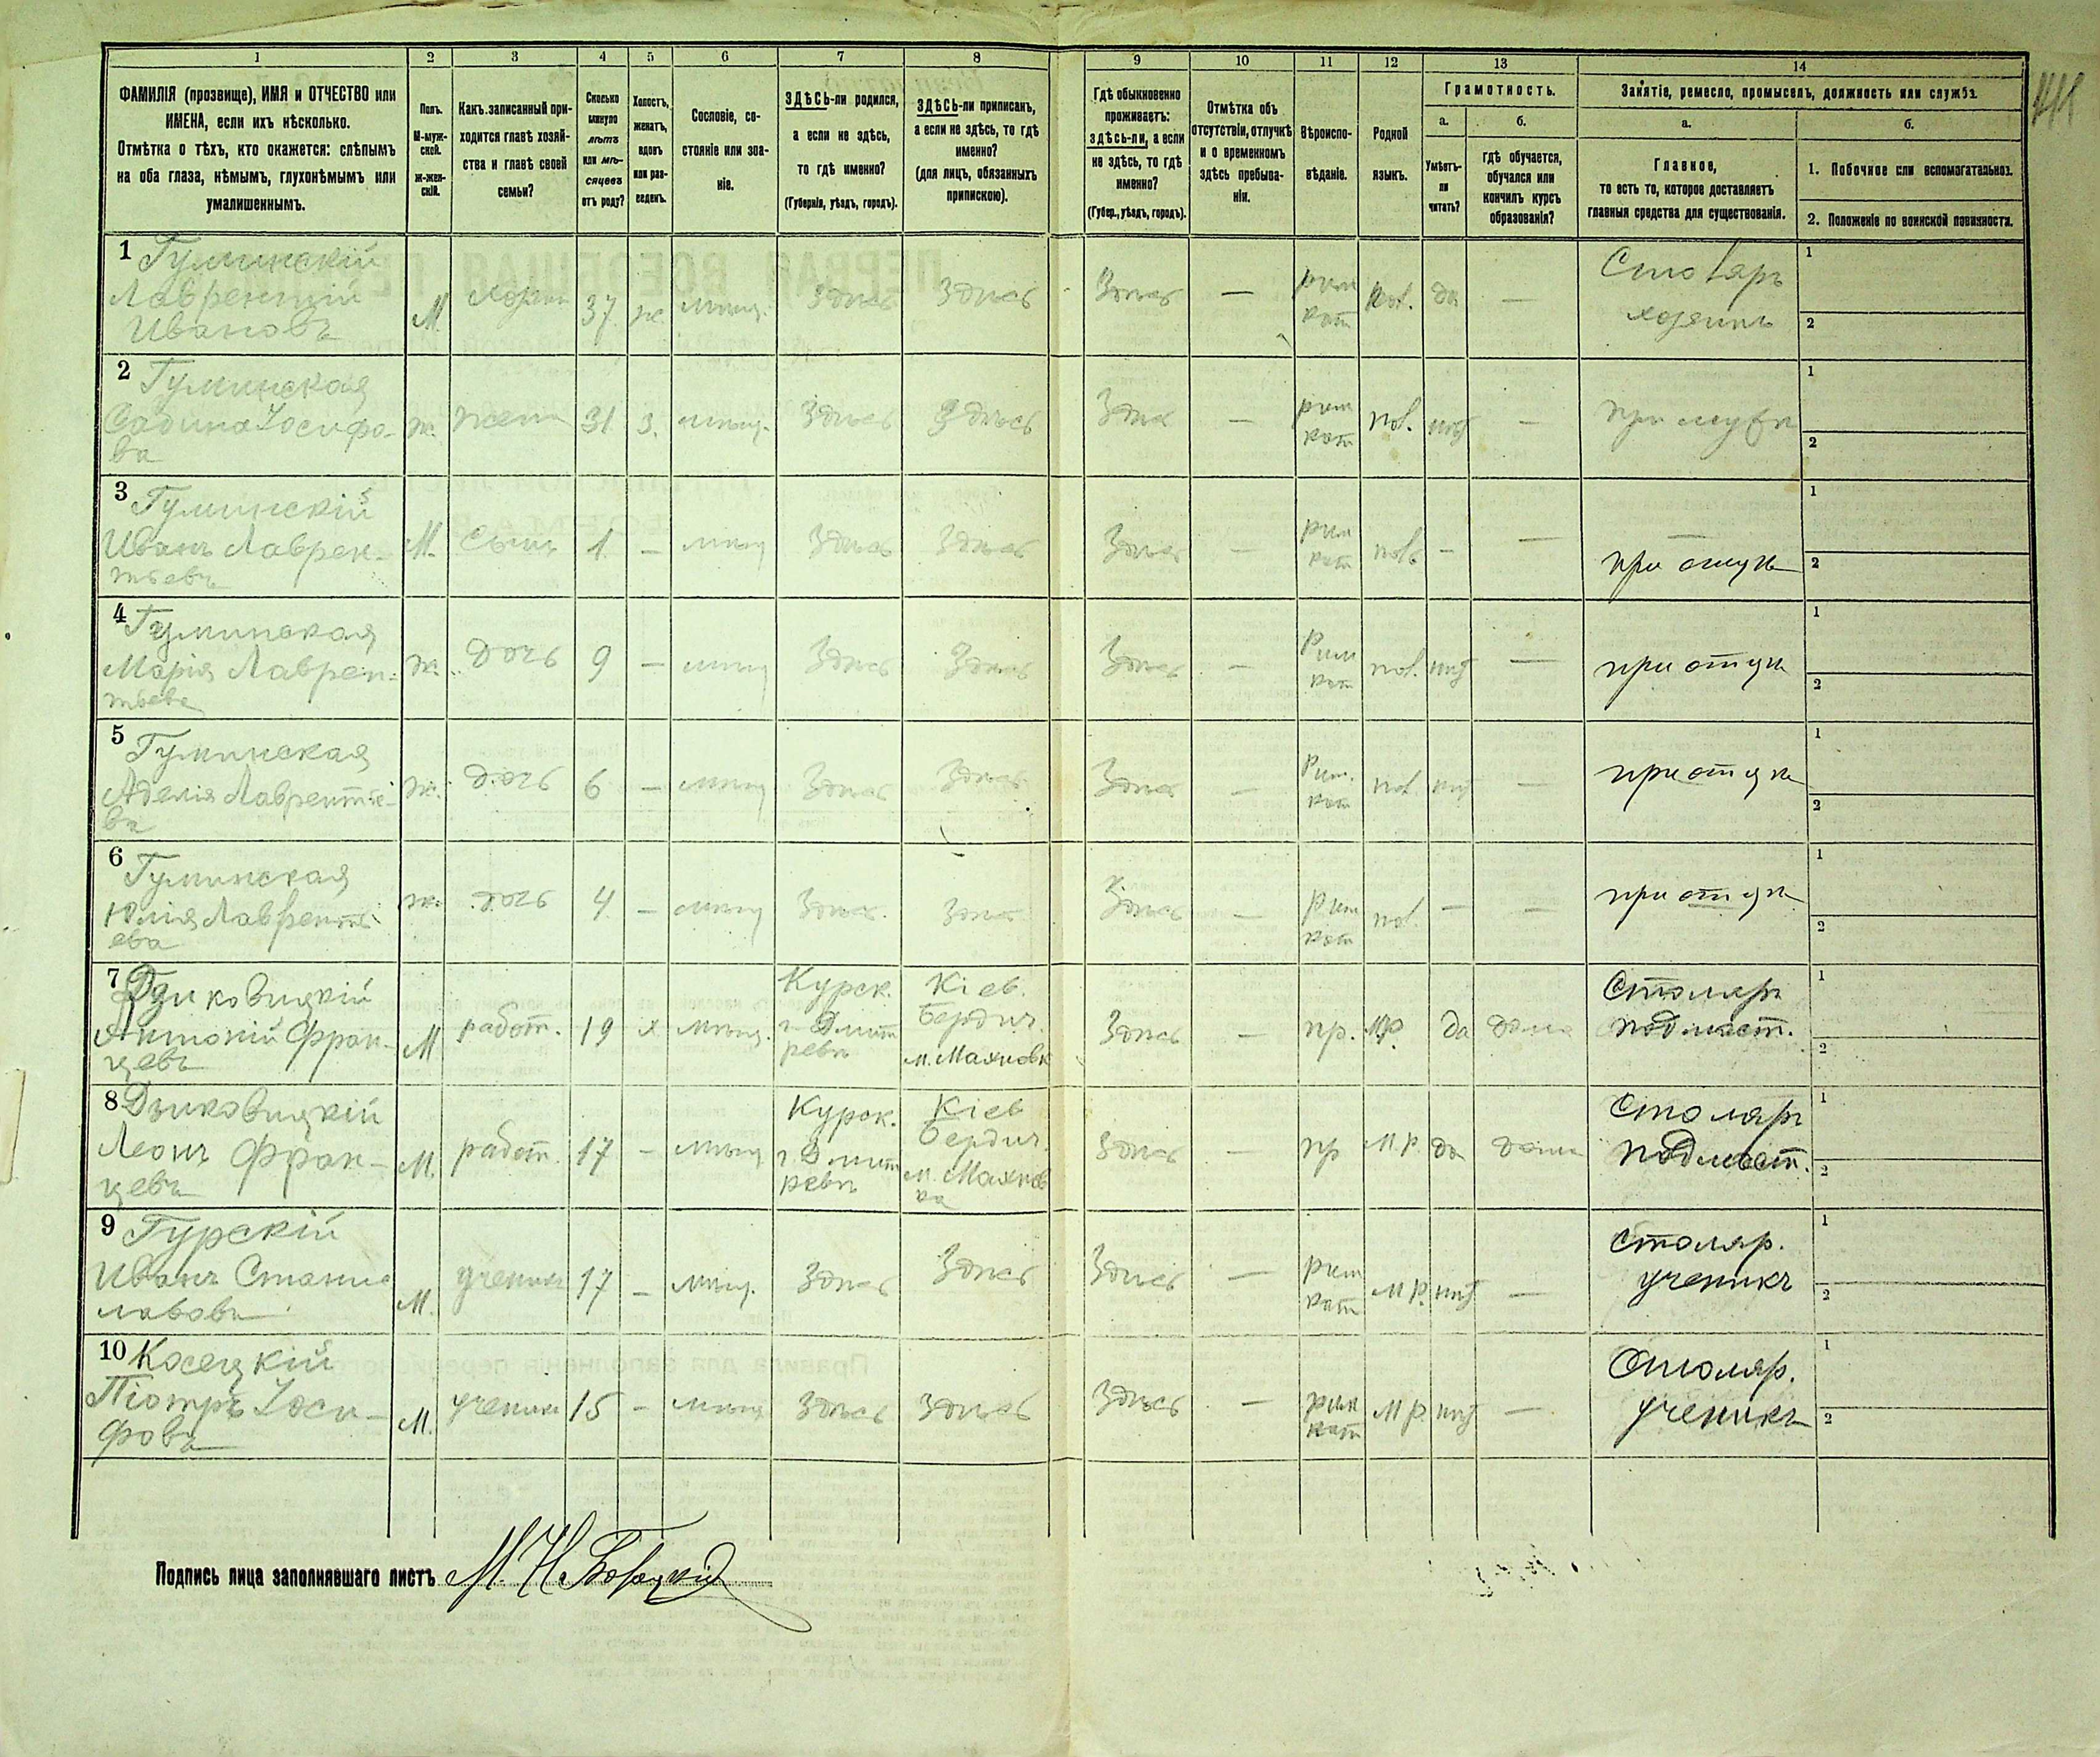 1 2 3 4 5 6 7 8 9 10 11 12 13 14
ФАМИЛІЯ (прозвище), ИМЯ и ОТЧЕСТВО или
ИМЕНА, если ихъ нѣсколько.
Отмѣтка о тѣхъ, кто окажется: слѣпымъ
на оба глаза, нѣмымъ, глухонѣмымъ или
умалишеннымъ.
Полъ.
М-муж-
ской.
Ж-жен-
скій.
Какъ записанный при-
ходится главѣ хозяй-
ства и главѣ своей
семьи?
Сколько
минуло
лѣтъ
или мѣ-
сяцевъ
отъ роду?
Холостъ,
женатъ,
вдовъ
или раз-
веденъ.
Сословіе, со-
стояніе или зва-
ніе.
ЗДѢСЬ-ли родился,
а если не здѣсь,
то гдѣ именно?
(Губернія, уѣздъ, городъ).
ЗДѢСЬ-ли приписанъ,
а если не здѣсь, то гдѣ
именно?
(для лицъ, обязанныхъ
припискою).
Гдѣ обыкновенно
проживаетъ:
здѣсь-ли, а если
не здѣсь, то гдѣ
именно?
(Губер., уѣздъ, городъ).
Отмѣтка объ
отсутствіи, отлучкѣ
и о временномъ
здѣсь пребыва-
ніи.
Вѣроиспо-
вѣданіе.
Родной
языкъ.
Грамотность.
а.
Умѣетъ-
ли
читать?
б.
гдѣ обучается,
обучался или
кончилъ курсъ
образованія?
Занятіе, ремесло, промыселъ, должность или служба.
а.
Главное,
то есть то, которое доставляетъ
главныя средства для существованія.
б.
1. Побочное или вспомогательное.
2. Положеніе по воинской повинности.
1 Гуминскій
Лаврентій
Ивановъ
М. 37 ж. мѣщ. Здѣсь Здѣсь Здѣсь — рим кат пол. да — Столяръ
хозяинъ
1
2
2 Гуминская
Сабина Іосифо-
ва
ж. жена 31 з. мѣщ. Здѣсь Здѣсь Здѣсь — рим кат пол. нѣт — при мужѣ
1
2
3 Гуминскій
Иванъ Лаврен-
тьевъ
М. сынъ 1 — мѣщ Здѣсь Здѣсь Здѣсь — рим кат пол. — — при отцѣ
1
2
4 Гуминская
Марія Лаврен-
тьева
ж. дочь 9 — мѣщ Здѣсь Здѣсь Здѣсь — Рим кат пол. нѣт — при отцѣ
1
2
5 Гуминская
Аделія Лаврентье-
ва
ж. дочь 6 — мѣщ Здѣсь Здѣсь Здѣсь — Рим. кат пол. нѣт — при отцѣ
1
2
6 Гуминская
Юлія Лаврентьі-
ева
ж. дочь 4 — мѣщ Здѣсь. Здѣсь Здѣсь — Рим кат пол. — — при отцѣ
1
2
7 Дзиковицкій
Антоній Фран-
цевъ
М работ. 19 х мѣщ. Курск. г Дмит ревѣ Кіев. Бердич. м. Махновк Здѣсь — пр. МР. да дома Столяръ
подмаст.
1
2
8 Дзиковицкій
Леонъ Фран-
цевъ
М. работ. 17 — мѣщ Курск. г Дмит ревѣ Кіев Бердич. м. Махнов ка Здѣсь — пр М.Р. да дома Столяръ
подмаст.
1
2
9 Гурскій
Иванъ Станис
лавовъ
М. ученикъ 17 — мѣщ. Здѣсь Здѣсь Здѣсь — рим кат М Р. нѣт — столяр.
ученикъ
1
2
10 Косецкій
Піотръ Іоси-
фовъ
М. ученикъ 15 — мѣщ Здѣсь Здѣсь Здѣсь — рим кат М Р нѣт — Столяр.
ученикъ
1
2
Подпись лица заполнявшаго листъ М. Н.